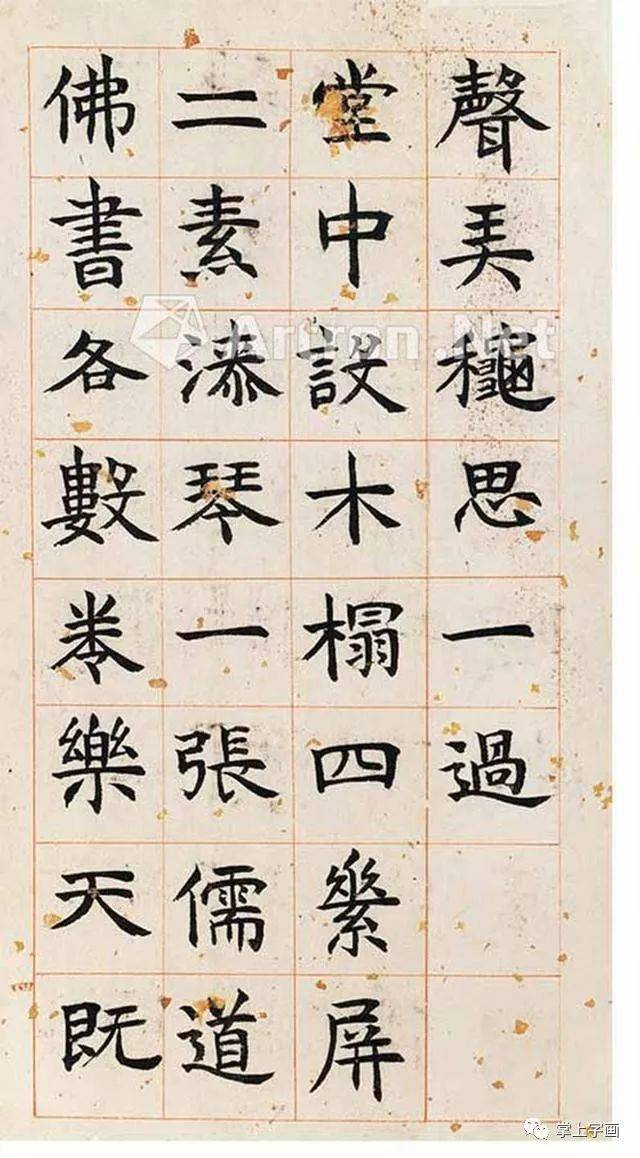 聲弄穐思一過
堂中設木榻四屏
二素漆琴一張儒道
佛書各數卷樂天既
Artron.Net
掌上字画